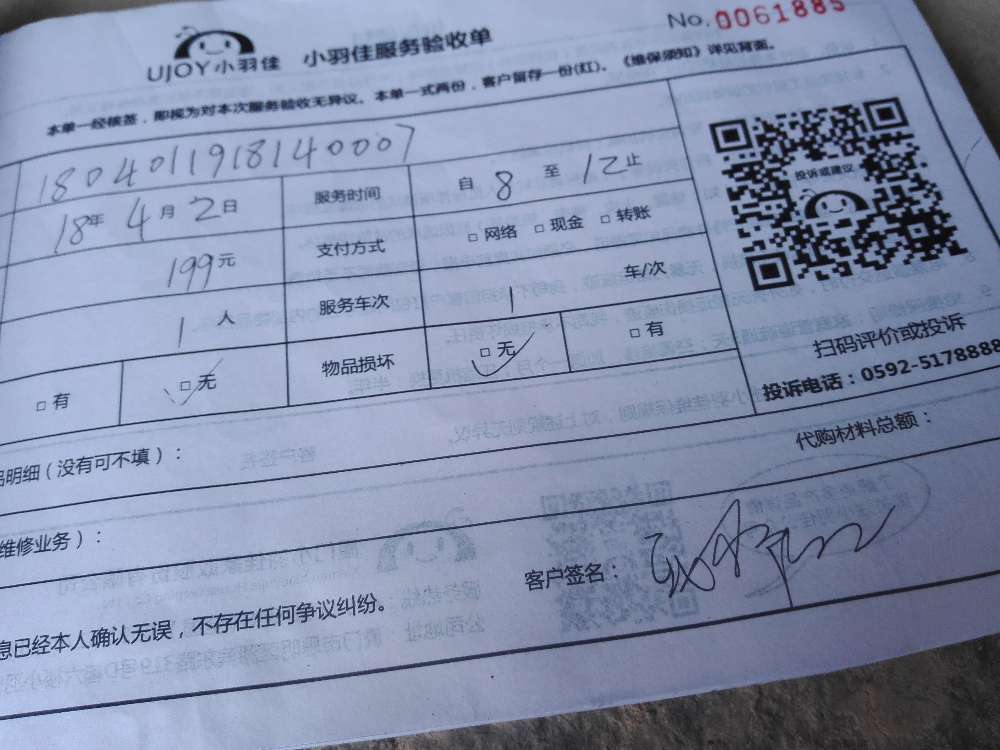 No. 0061885
UJOY小羽佳 小羽佳服务验收单
本单一经核签，即视为对本次服务验收无异议。本单一式两份，客户留存一份(红)。《维保须知》详见背面。
1804011918140007
18年 4月 2日 服务时间 自 8 至 12 止
199元 支付方式 □网络 □现金 □转账
1人 服务车次 1 车/次
□有 □无 物品损坏 □无 □有
投诉或建议
扫码评价或投诉
投诉电话：0592-5178888
明细(没有可不填)： 代购材料总额：
维修业务)：
客户签名：
息已经本人确认无误，不存在任何争议纠纷。